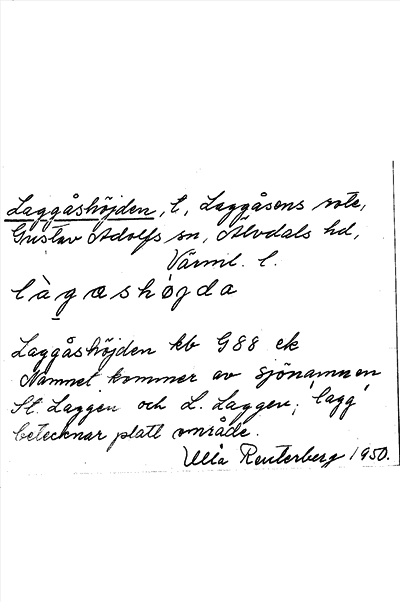 Laggåshöjden, t, Laggåsens rote,
Gustav Adolfs sn, Älvdals hd,
Värml. l.
làgashøjda
Laggåshöjden kb G88 ek
Namnet kommer av sjönamnen
St. Laggen och L. Laggen; 'lagg'
betecknar platt område.
Ulla Reuterberg 1950.